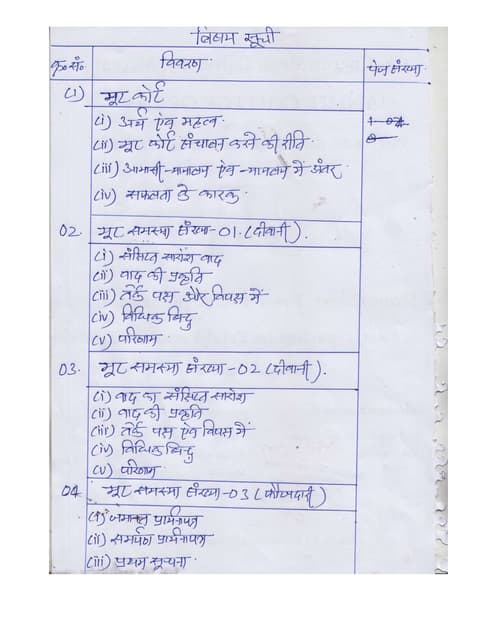 विषय सूची
क्र०सं० विवरण पेज संख्या
(1) मूट कोर्ट
(i) अर्थ एंव महत्व
(ii) मूट कोर्ट संचालन करने की रीति
(iii) आभासी न्यायालय एंव न्यायालय में अंतर
(iv) सफलता के कारक
02. मूट समस्या संख्या-01 (दीवानी).
(i) संक्षिप्त सारांश वाद
(ii) वाद की प्रकृति
(iii) तर्क पक्ष और विपक्ष में
(iv) विधिक बिंदु
(v) परिणाम
03. मूट समस्या संख्या-02 (दीवानी).
(i) वाद का संक्षिप्त सारांश
(ii) वाद की प्रकृति
(iii) तर्क पक्ष एंव विपक्ष में
(iv) विधिक बिंदु
(v) परिणाम
04 मूट समस्या संख्या-03 (फौजदारी)
(i) जमानत प्रार्थनापत्र
(ii) समर्पण प्रार्थनापत्र
(iii) प्रथम सूचना